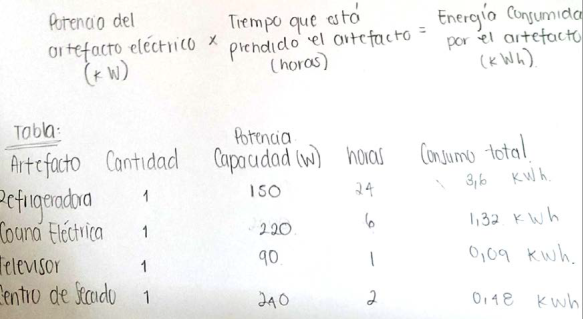 Potencia del artefacto eléctrico (kW) × Tiempo que está prendido el artefacto (horas) = Energía Consumida por el artefacto (kWh)
Tabla:
Artefacto Cantidad Potencia Capacidad (W) horas Consumo total
Refrigeradora 1 150 24 3,6 kWh.
Cocina Eléctrica 1 220 6 1,32 kWh
Televisor 1 90 1 0,09 kWh.
Centro de Secado 1 240 2 0,48 kWh